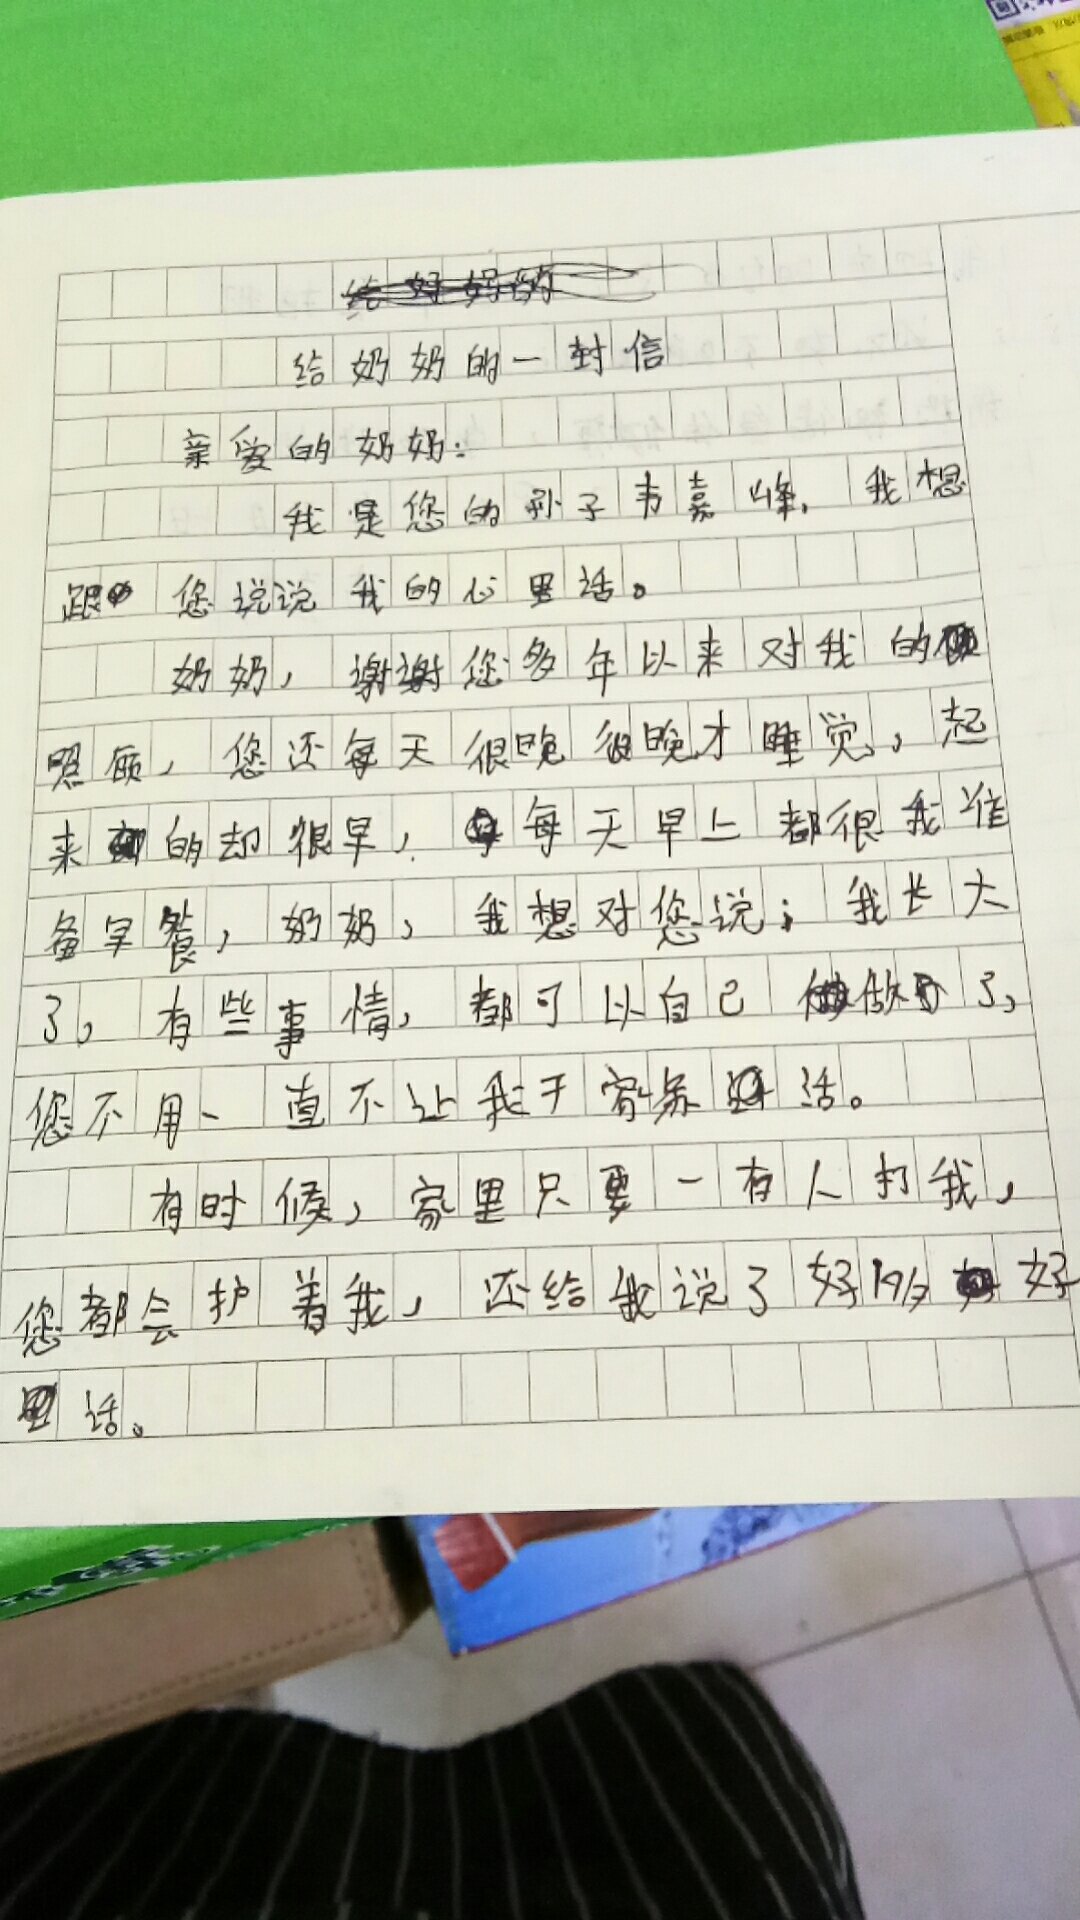 给奶奶的一封信
亲爱的奶奶:
我是您的孙子韦嘉峰,我想
跟您说说我的心里话。
奶奶,谢谢您多年以来对我的
照顾,您还每天很晚很晚才睡觉,起
来的却很早,每天早上都很我准
备早餐,奶奶,我想对您说;我长大
了,有些事情,都可以自己做了,
您不用一直不让我干家务活。
有时候,家里只要一有人打我,
您都会护着我,还给我说了好多好
话。